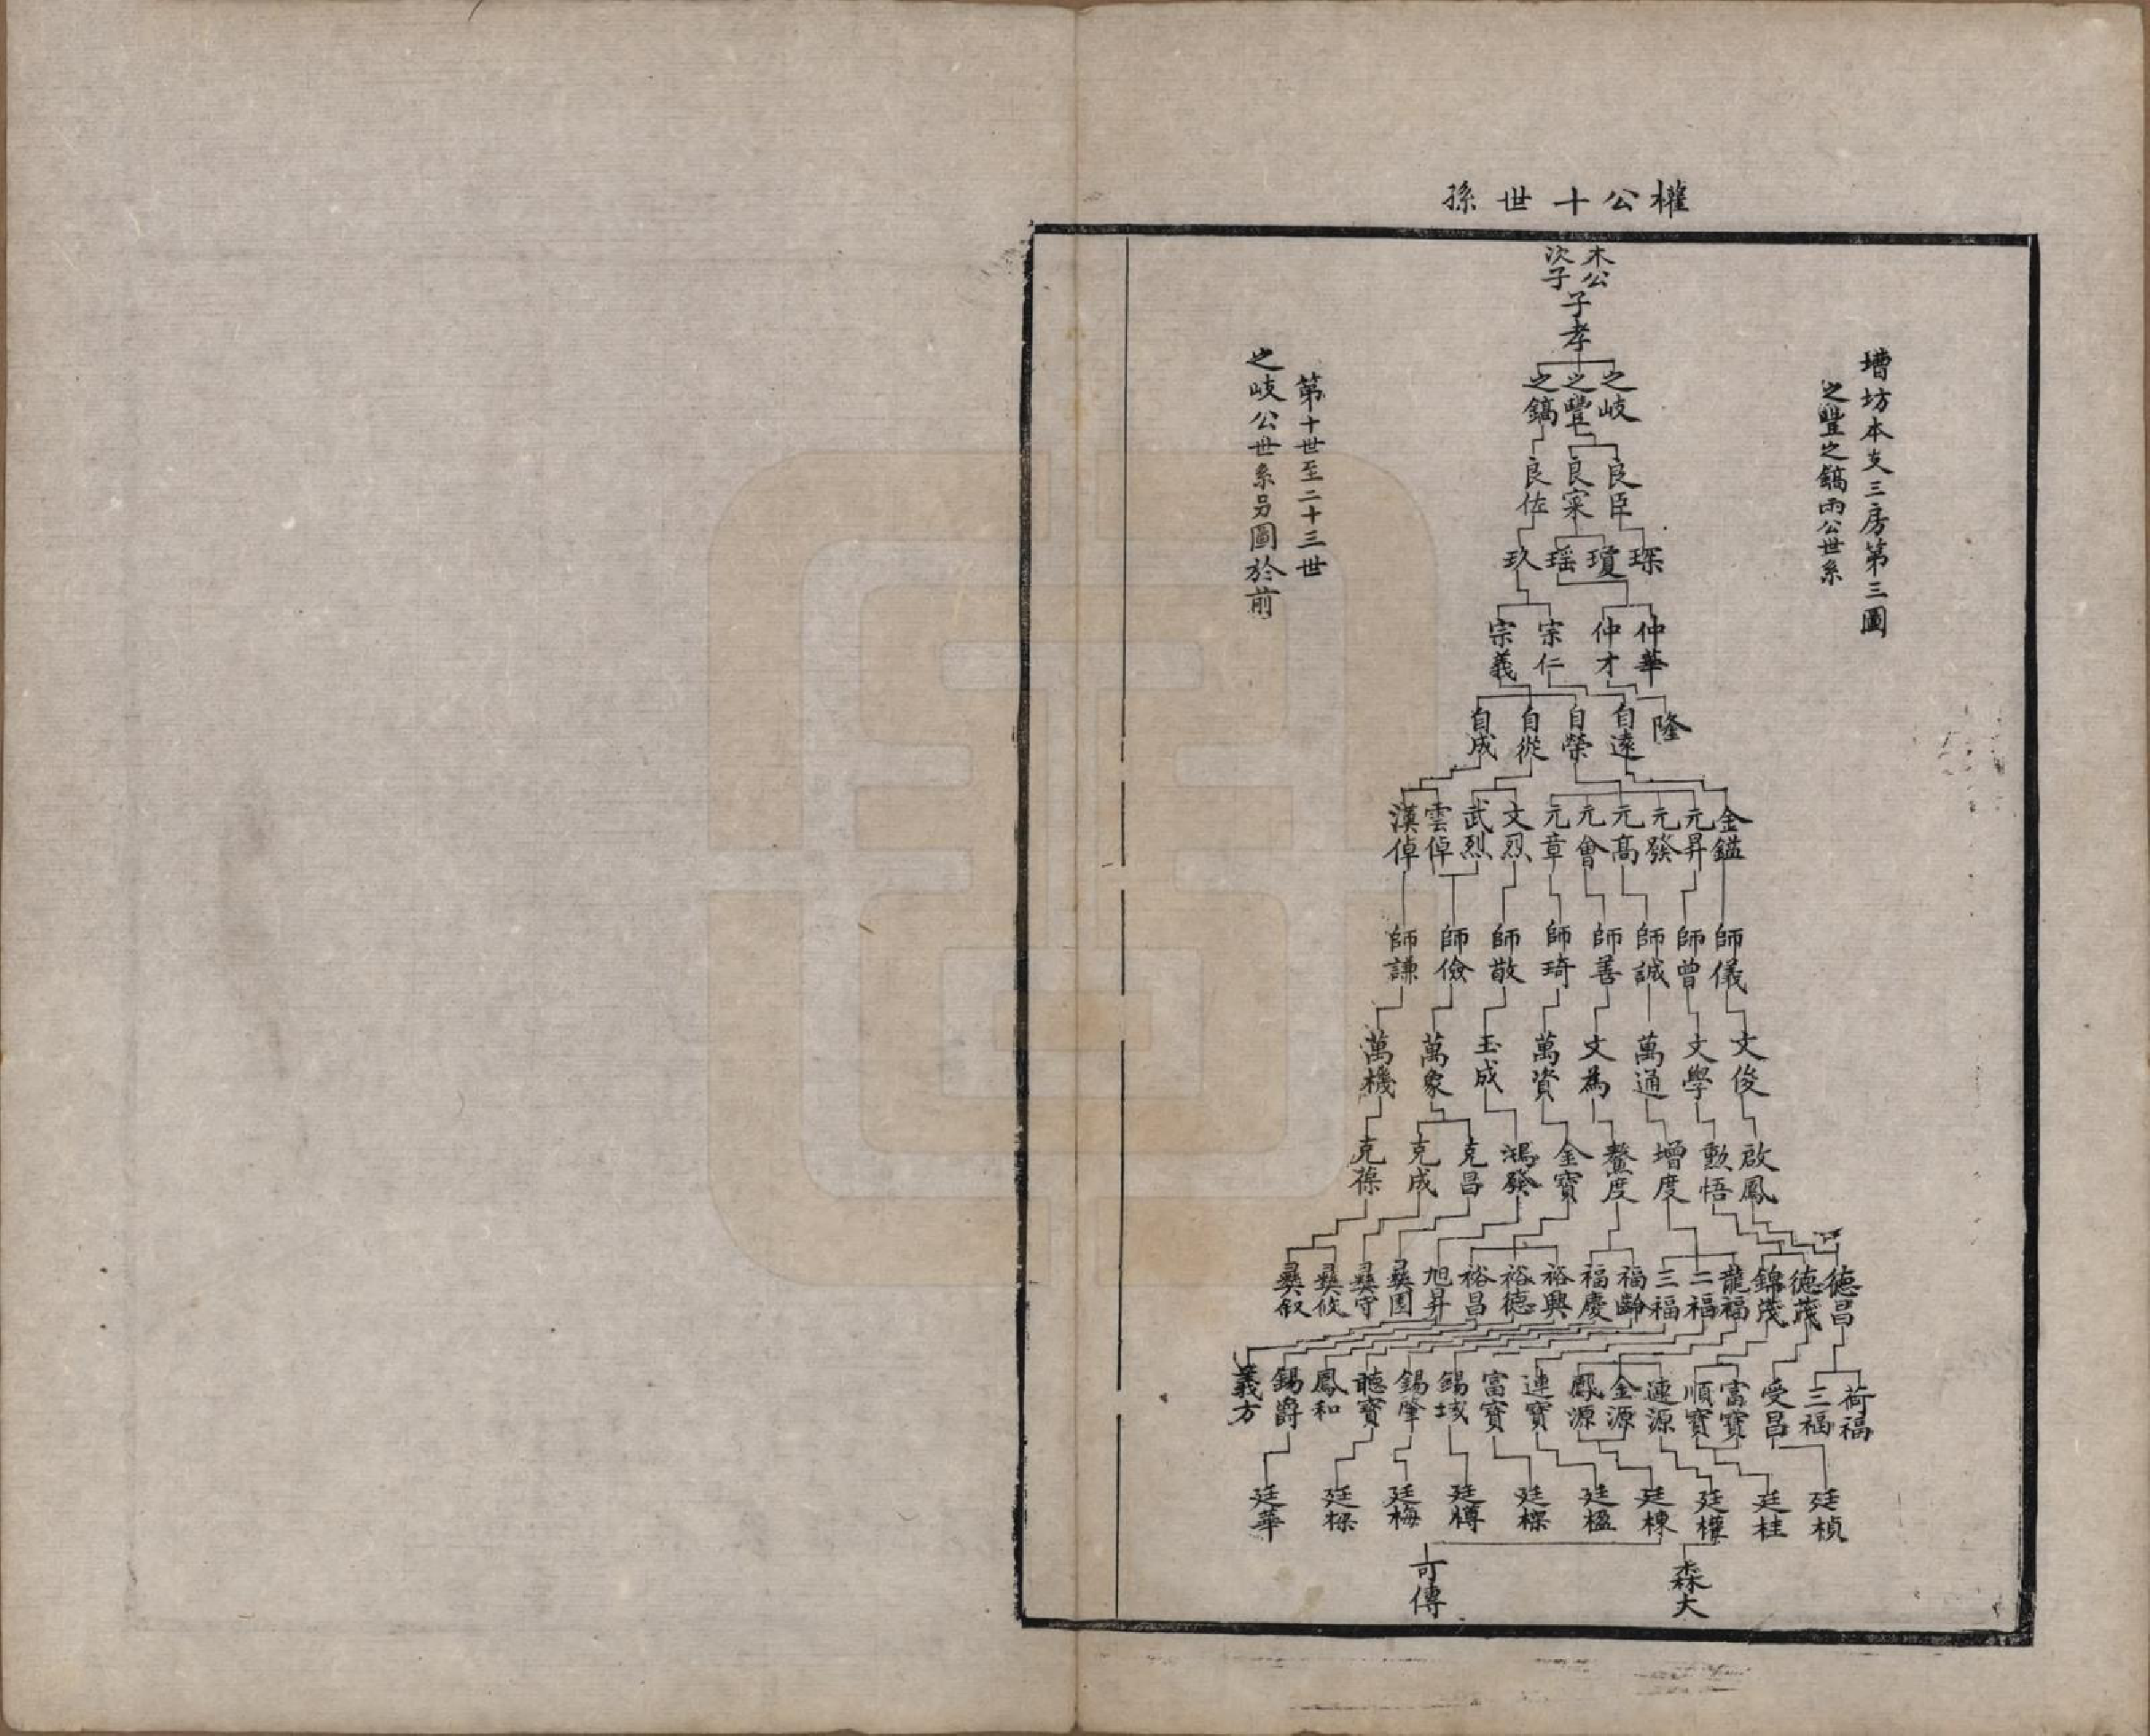 權公十世孫
槽坊本支三房第三圖
之豐之鎬兩公世系
木公
次子
子孝
之岐 之豐 之鎬
良臣 良寀 良佐
琛 瓊 瑶 玖
仲華 仲才 宗仁 宗義
隆 自遠 自榮 自從 自成
金鎰 元昇 元發 元高 元會 元章 文烈 武烈 雲倬 漢倬
師儀 師曾 師誠 師善 師琦 師敬 師儉 師謙
文俊 文學 萬通 文為 萬資 玉成 萬象 萬機
啟鳳 勳悟 增度 鰲度 金寶 鴻發 克昌 克成 克葆
德昌 德茂 錦茂 龍福 二福 三福 福齡 福慶 裕興 裕德 裕昌 旭昇 彝圄 彝守 彝俊 彝叙
荷福 三福 受昌 富寶 順寶 連源 金源 鳳源 連寶 富寶 錫域 錫肇 聽寶 鳳和 錫爵 義方
廷楨 廷桂 廷權 廷棟 廷楹 廷樑 廷樽 廷梅 廷樑 廷華
森大 可傳
第十世至二十三世
之岐公世系另圖於前